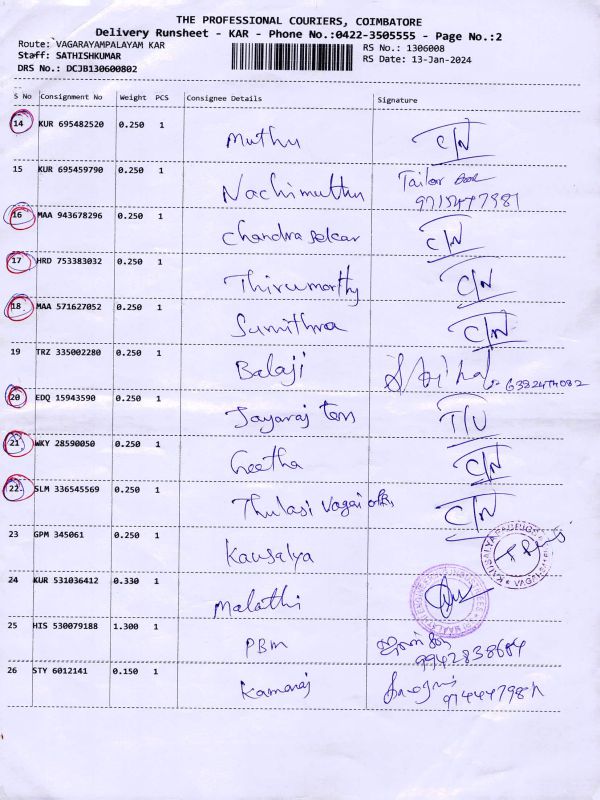 THE PROFESSIONAL COURIERS, COIMBATORE
Delivery Runsheet - KAR - Phone No.:0422-3505555 - Page No.:2
Route: VAGARAYAMPALAYAM KAR
RS No.: 1306008
Staff: SATHISHKUMAR
RS Date: 13-Jan-2024
DRS No.: DCJB130600802
S No Consignment No Weight PCS Consignee Details Signature
14 KUR 695482520 0.250 1 Muthu C/N
15 KUR 695459790 0.250 1 Nachimuthu Tailor
16 MAA 943678296 0.250 1 Chandra Sekar C/N
17 HRD 753383032 0.250 1 Thirumorthy C/N
18 MAA 571627052 0.250 1 Sumithra C/N
19 TRZ 335002280 0.250 1 Balaji
20 EDQ 15943590 0.250 1 Jayaraj Tem T/U
21 WKY 28590050 0.250 1 Geetha C/N
22 SLM 336545569 0.250 1 Thulasi Vagai C/N
23 GPM 345061 0.250 1 Kausalya
24 KUR 531036412 0.330 1 Malathi
25 HIS 530079188 1.300 1 PBM 9942838684
26 STY 6012141 0.150 1 Kamaraj